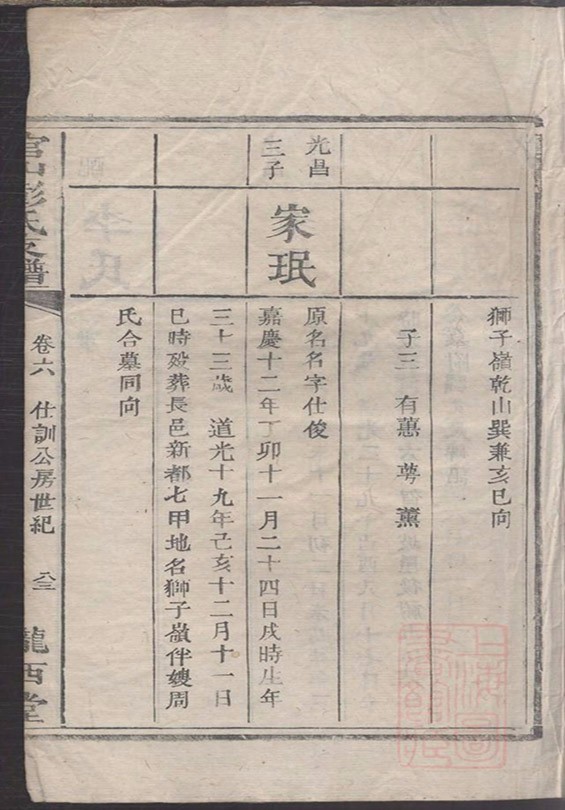 獅子嶺乾山巽兼亥巳向
子三 有蕙 蕚 薰
光昌
三子
家珉
原名名字仕俊
嘉慶十二年丁卯十一月二十四日戌時生年
三十三歲 道光十九年己亥十二月十一日
巳時殁葬長邑新都七甲地名獅子嶺伴嫂周
氏合墓同向
官山彭氏支譜
卷六 仕訓公房世紀 八三 隴西堂